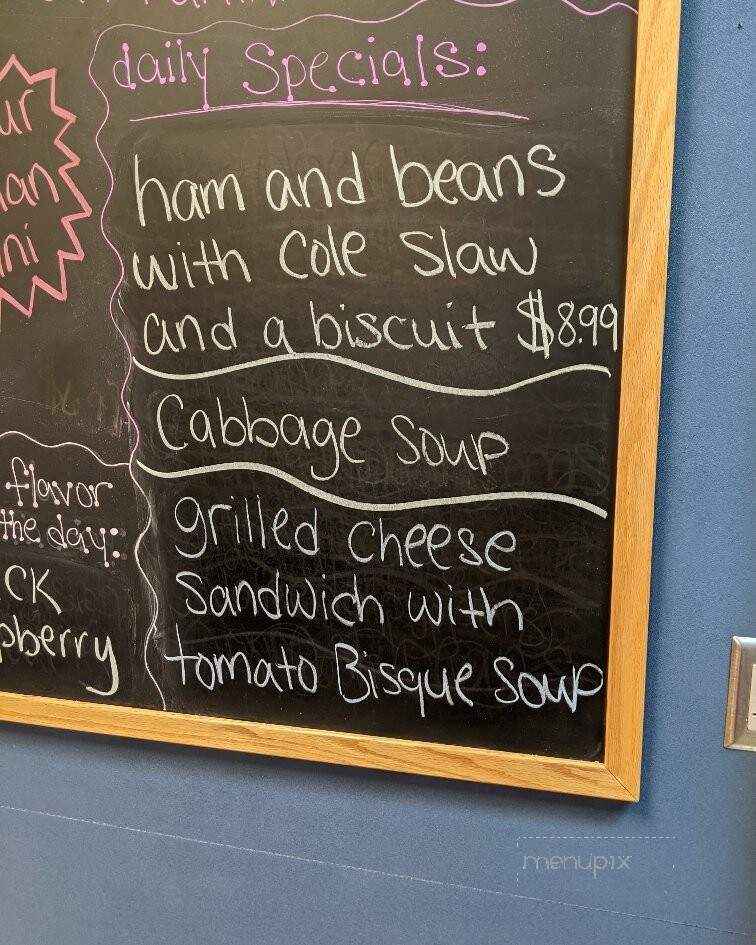 daily Specials:
ham and beans
with Cole Slaw
and a biscuit $8.99
Cabbage Soup
grilled cheese
Sandwich with
tomato Bisque Soup
flavor
the day:
menupix